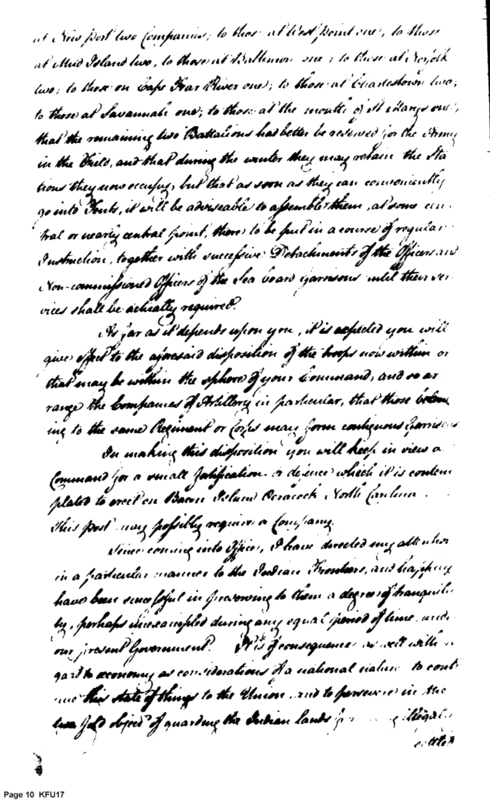 at New port two Companies; to those at West point one; to those
at Mud Island two, to those at Baltimore one; to those at Norfolk
two; to those on Cape Fear River one; to those at Charlestown two;
to those at Savannah one; to those at the mouth of St Marys one,
that the remaining two Battalions had better be reserved for the Army
in the Field, and that during the winter they may retain the Sta
tions they now occupy, but that as soon as they can conveniently
go into Tents, it will be adviseable to assemble them, at some cen
tral or nearly central point, there to be put in a course of regular
Instruction, together with successive Detachments of the Officers and
Non-commissioned Officers of the Sea board Garrisons until their ser
vices shall be actually required.
As far as it depends upon you, it is expected you will
give effect to the aforesaid disposition of the troops now within or
that may be within the sphere of your Command, and so ar
range the Companies of Artillery in particular, that those belong
ing to the same Regiment or Corps may form contiguous Garrisons
In making this disposition you will keep in view a
Command for a small fortification or defence which it is contem
plated to erect on Beacon Island Ocracock, North Carolina.
This post may possibly require a Company.
Since coming into Office, I have directed my attention
in a particular manner to the Indian Frontiers, and happily
have been successful in preserving to them a degree of tranquili
ty, perhaps unexampled during any equal period of time, under
our present Government. It is of consequence as well with re
gard to economy as considerations of a national nature to conti
nue this state of things to the Union and to persevere in the
two fold object of guarding the Indian lands from illegal
settle
Page 10 KFU17